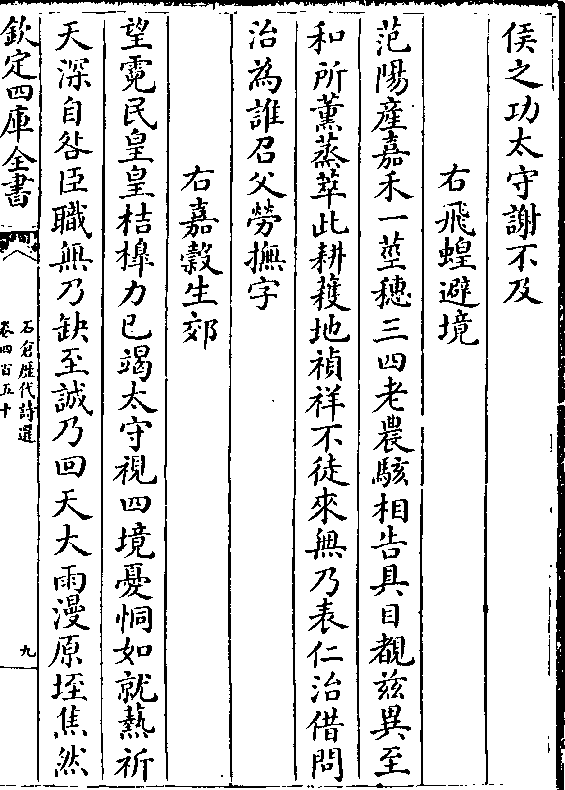 侯之功太守謝不及
右飛蝗避境
范陽産嘉禾一莖穗三四老農駭相告具目覩兹異至
和所薫蒸萃此耕穫地禎祥不徒來無乃表仁治借問
治為誰召父勞撫字
右嘉穀生郊
望霓民皇皇桔槹力已竭太守視四境憂恫如就熱祈
天深自咎臣職無乃缺至誠乃回天大雨漫原垤焦然
欽定四庫全書
石倉歴代詩選
卷四百五十
九